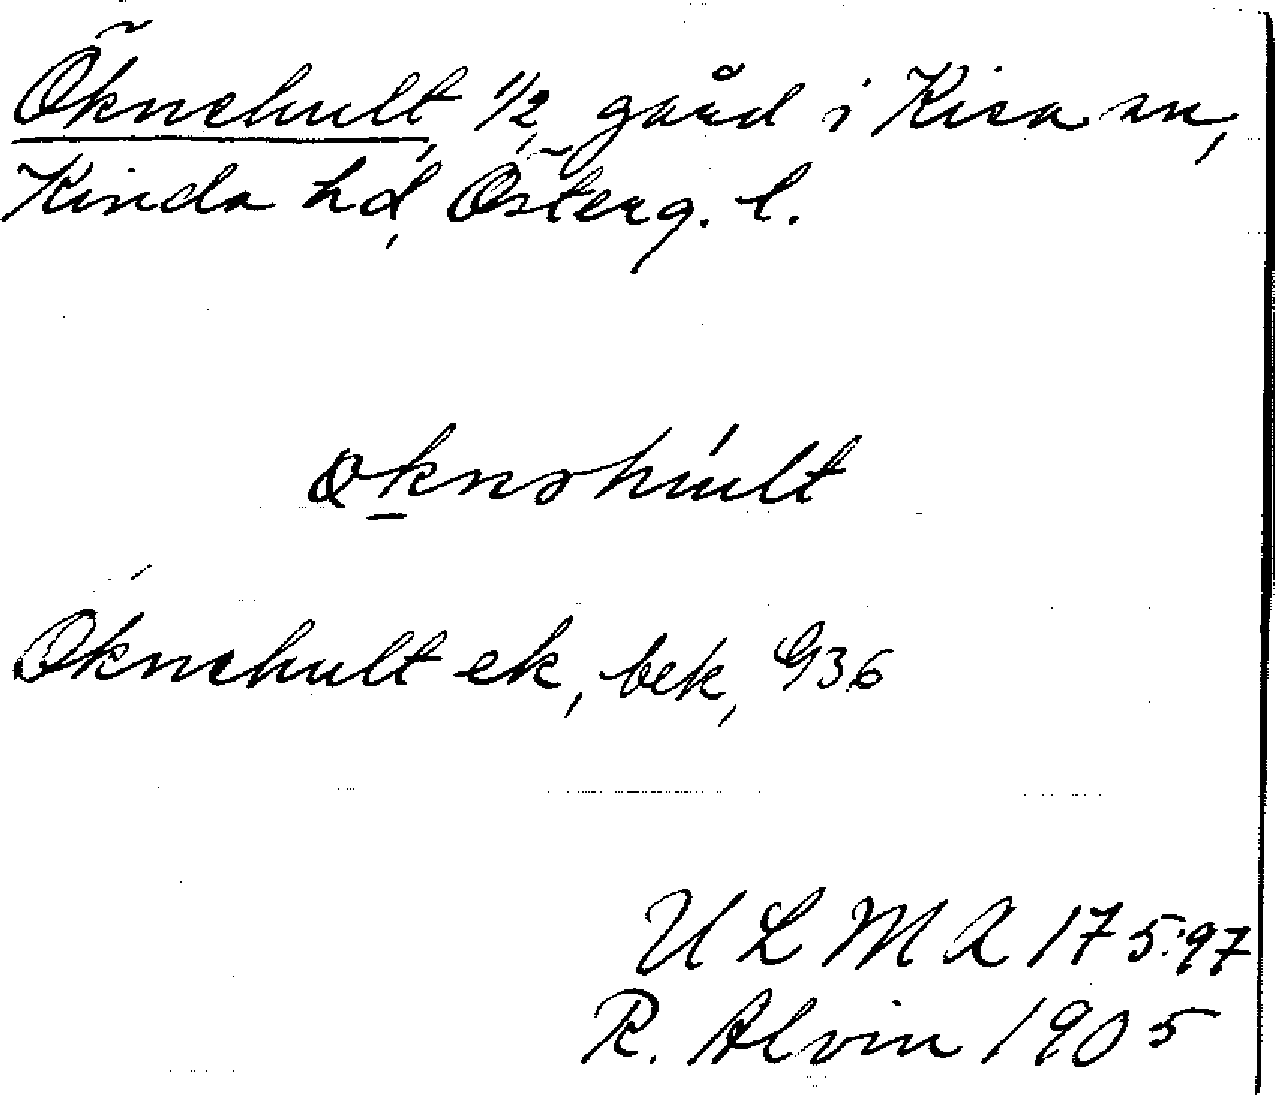 Öknehult, 1/2, gård i Kisa sn,
Kinda hd, Österg. l.
øknəhúlt
Öknehult ek, bek, G36
ULMA 175:97
R. Alvin 1905